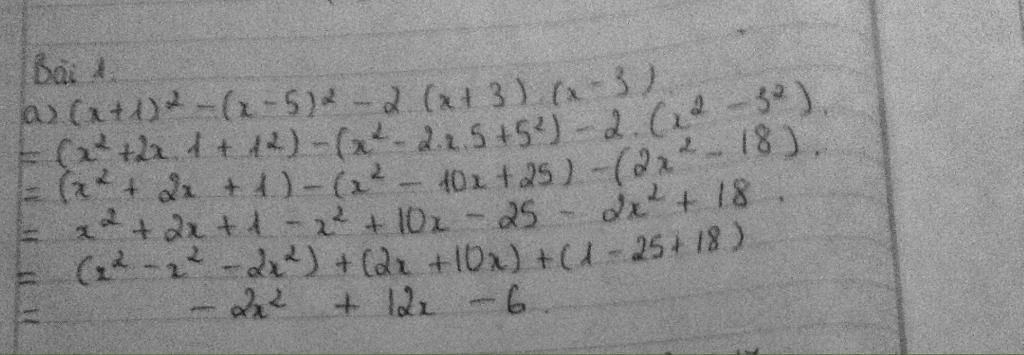 Bài 1.
a) (x+1)² - (x-5)² - 2.(x+3).(x-3)
= (x²+2x.1+1²) - (x²-2.x.5+5²) - 2.(x²-3²).
= (x²+2x+1) - (x²-10x+25) - (2x²-18).
= x²+2x+1 - x²+10x-25 - 2x²+18.
= (x²-x²-2x²) + (2x+10x) + (1-25+18)
= -2x² + 12x - 6.